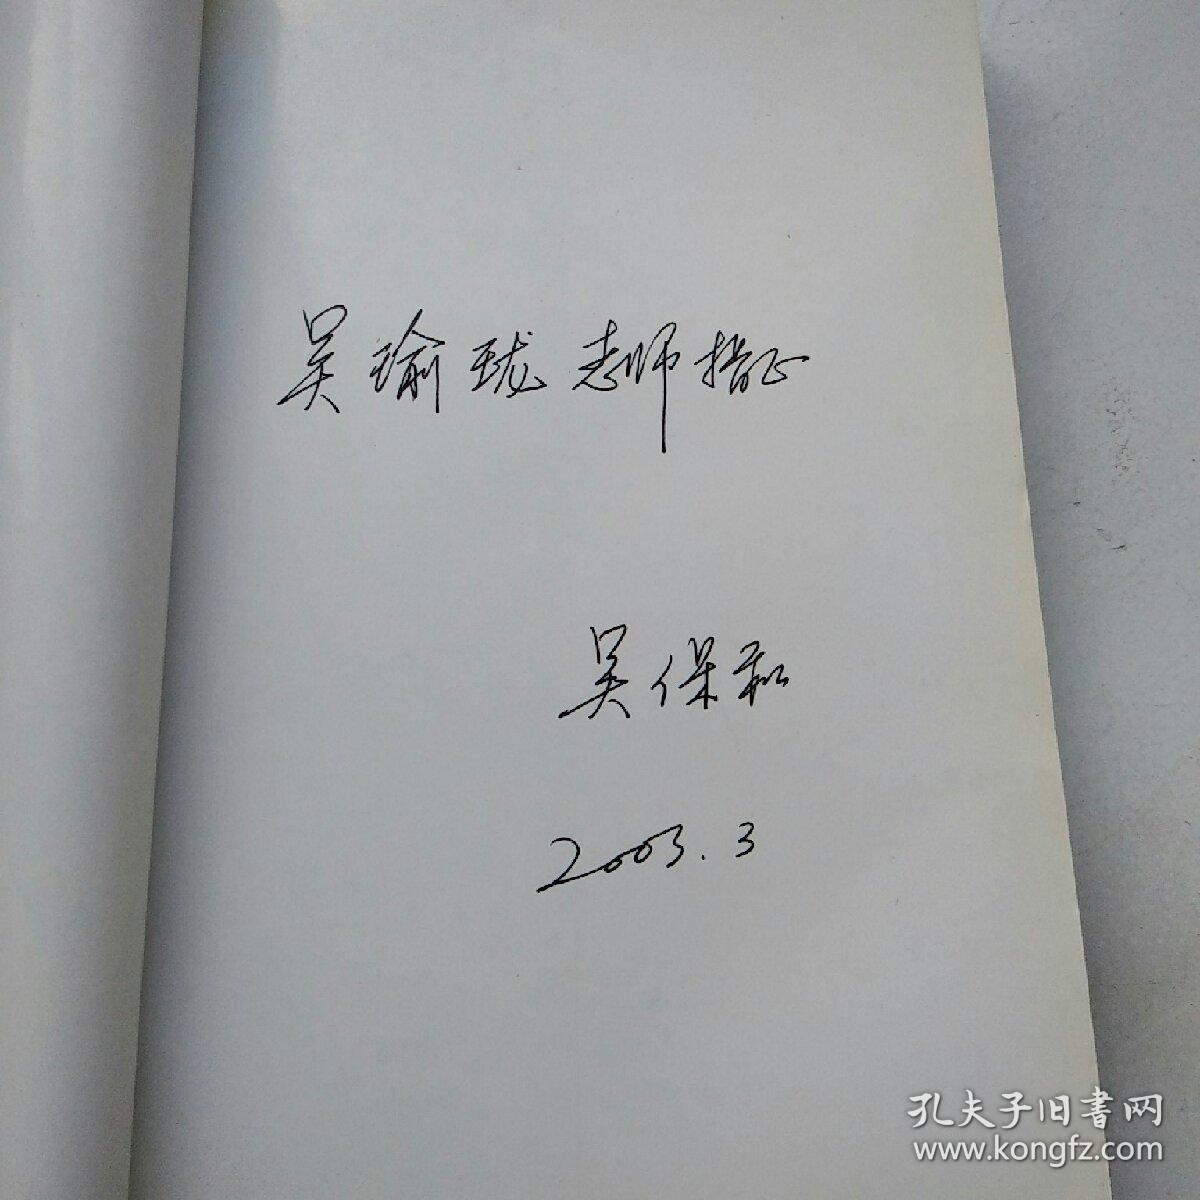 吴瑜珑老师指正
吴保和
2003.3
孔夫子旧书网
www.kongfz.com